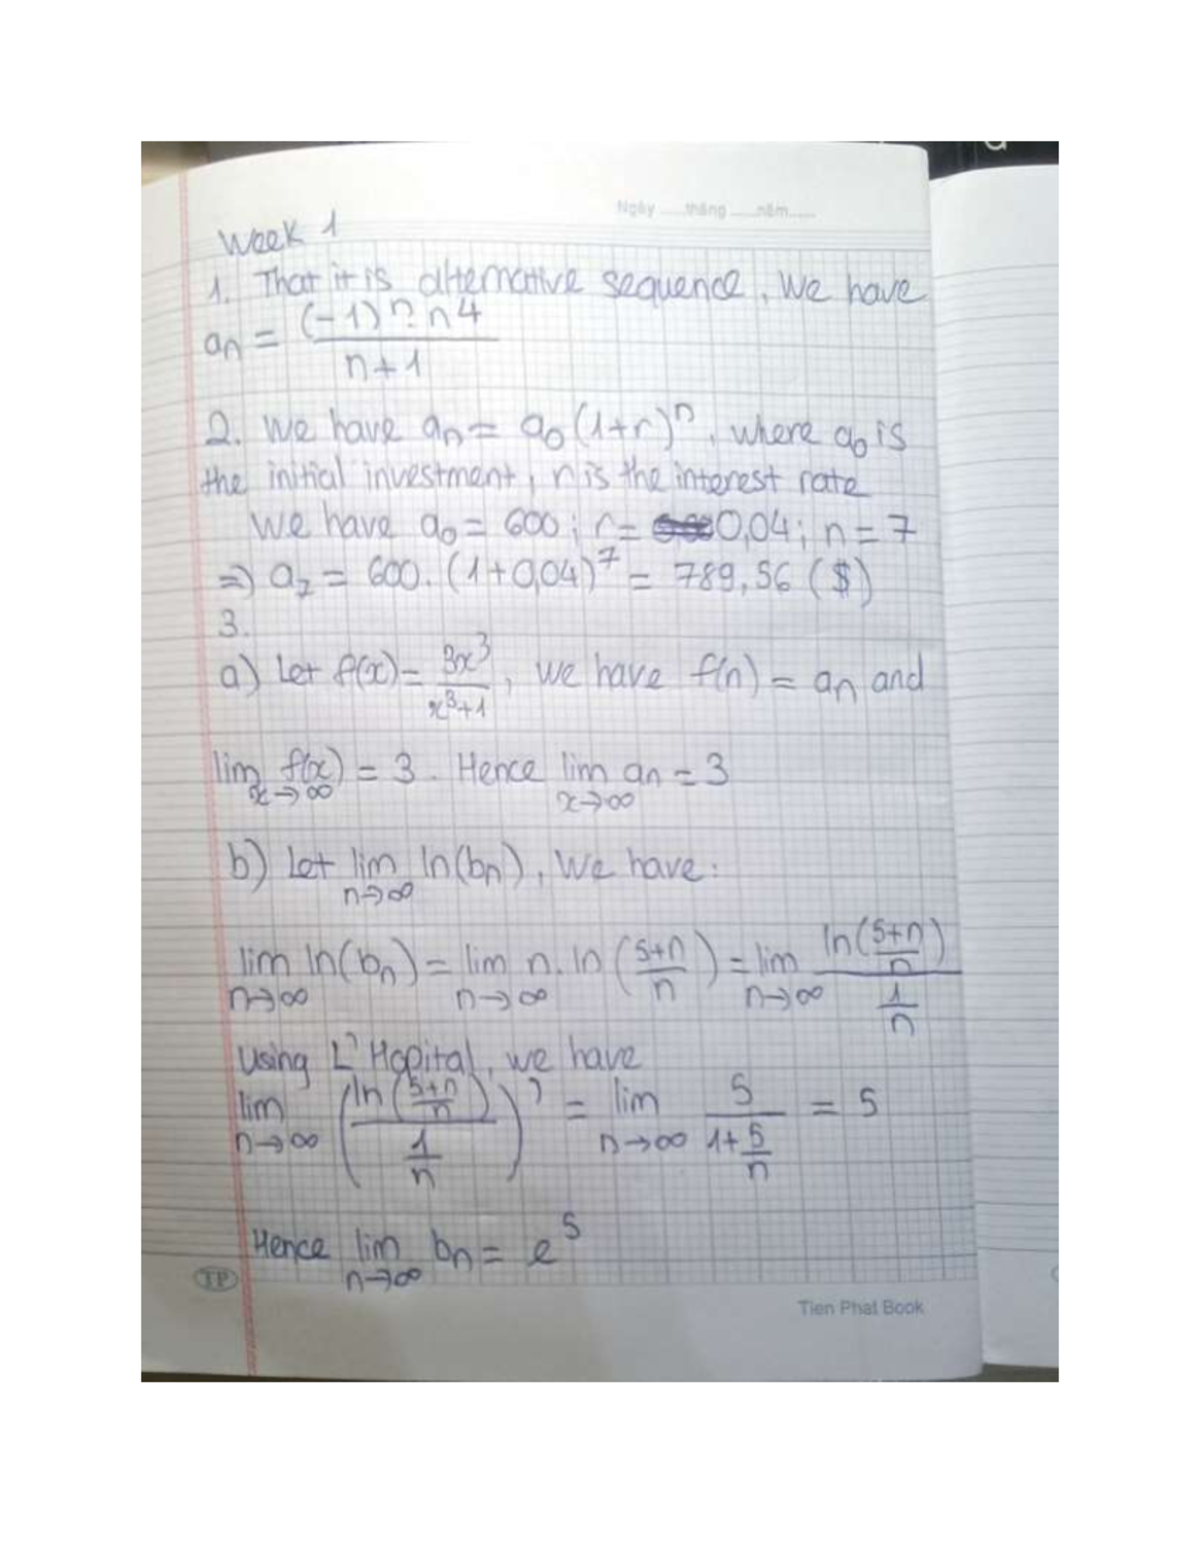 Ngày ......tháng ......năm......
Week 1
1. That it is alternative sequence. We have
an = (-1)^n . n4 / n+1
2. We have an = a0 (1+r)^n, where a0 is
the initial investment, r is the interest rate
We have a0 = 600; r = 0,04; n = 7
=> a7 = 600. (1+0,04)^7 = 789,56 ($)
3.
a) Let f(x) = 3x^3 / x^3+1, we have f(n) = an and
lim x→∞ f(x) = 3. Hence lim x→∞ an = 3
b) Let lim n→∞ ln(bn). We have:
lim n→∞ ln(bn) = lim n→∞ n. ln (5+n / n) = lim n→∞ ln(5+n / n) / (1 / n)
Using L'Hopital, we have
lim n→∞ (ln(5+n / n) / (1 / n))' = lim n→∞ 5 / (1+ 5/n) = 5
Hence lim n→∞ bn = e^5
TP
Tien Phat Book